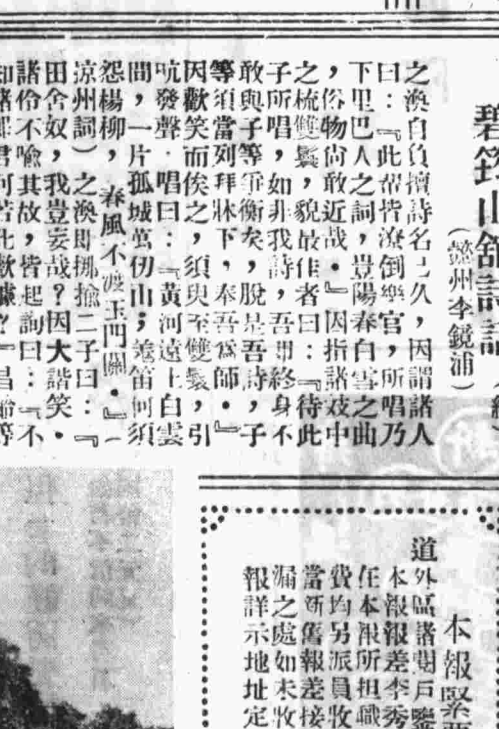 碧筠山舘詩話
（懿州李鏡浦）
之渙自負擅詩名已久，因謂諸人
曰：『此輩皆潦倒樂官，所唱乃
下里巴人之詞，豈陽春白雪之曲
，俗物尙敢近哉。』因指諸妓中
之梳雙鬟，貌最佳者曰：『待此
子所唱，如非我詩，吾即終身不
敢與子等爭衡矣，脫是吾詩，子
等須當列拜牀下，奉吾爲師。』
因歡笑而俟之，須臾至雙鬟，引
吭發聲，唱曰：『黃河遠上白雲
間，一片孤城萬仞山；羗笛何須
怨楊柳，春風不渡玉門關。』（
涼州詞）之渙即揶揄二子曰：『
田舍奴，我豈妄哉？因大諧笑。
諸伶不喻其故，皆起詢曰：『不
知諸郞君何若此歡噱？』昌齡等
本報緊要
道外區諸閱戶鑒
本報報差李秀
任本報所担職
費均另派員收
當新舊報差接
漏之處如未收
報詳示地址定